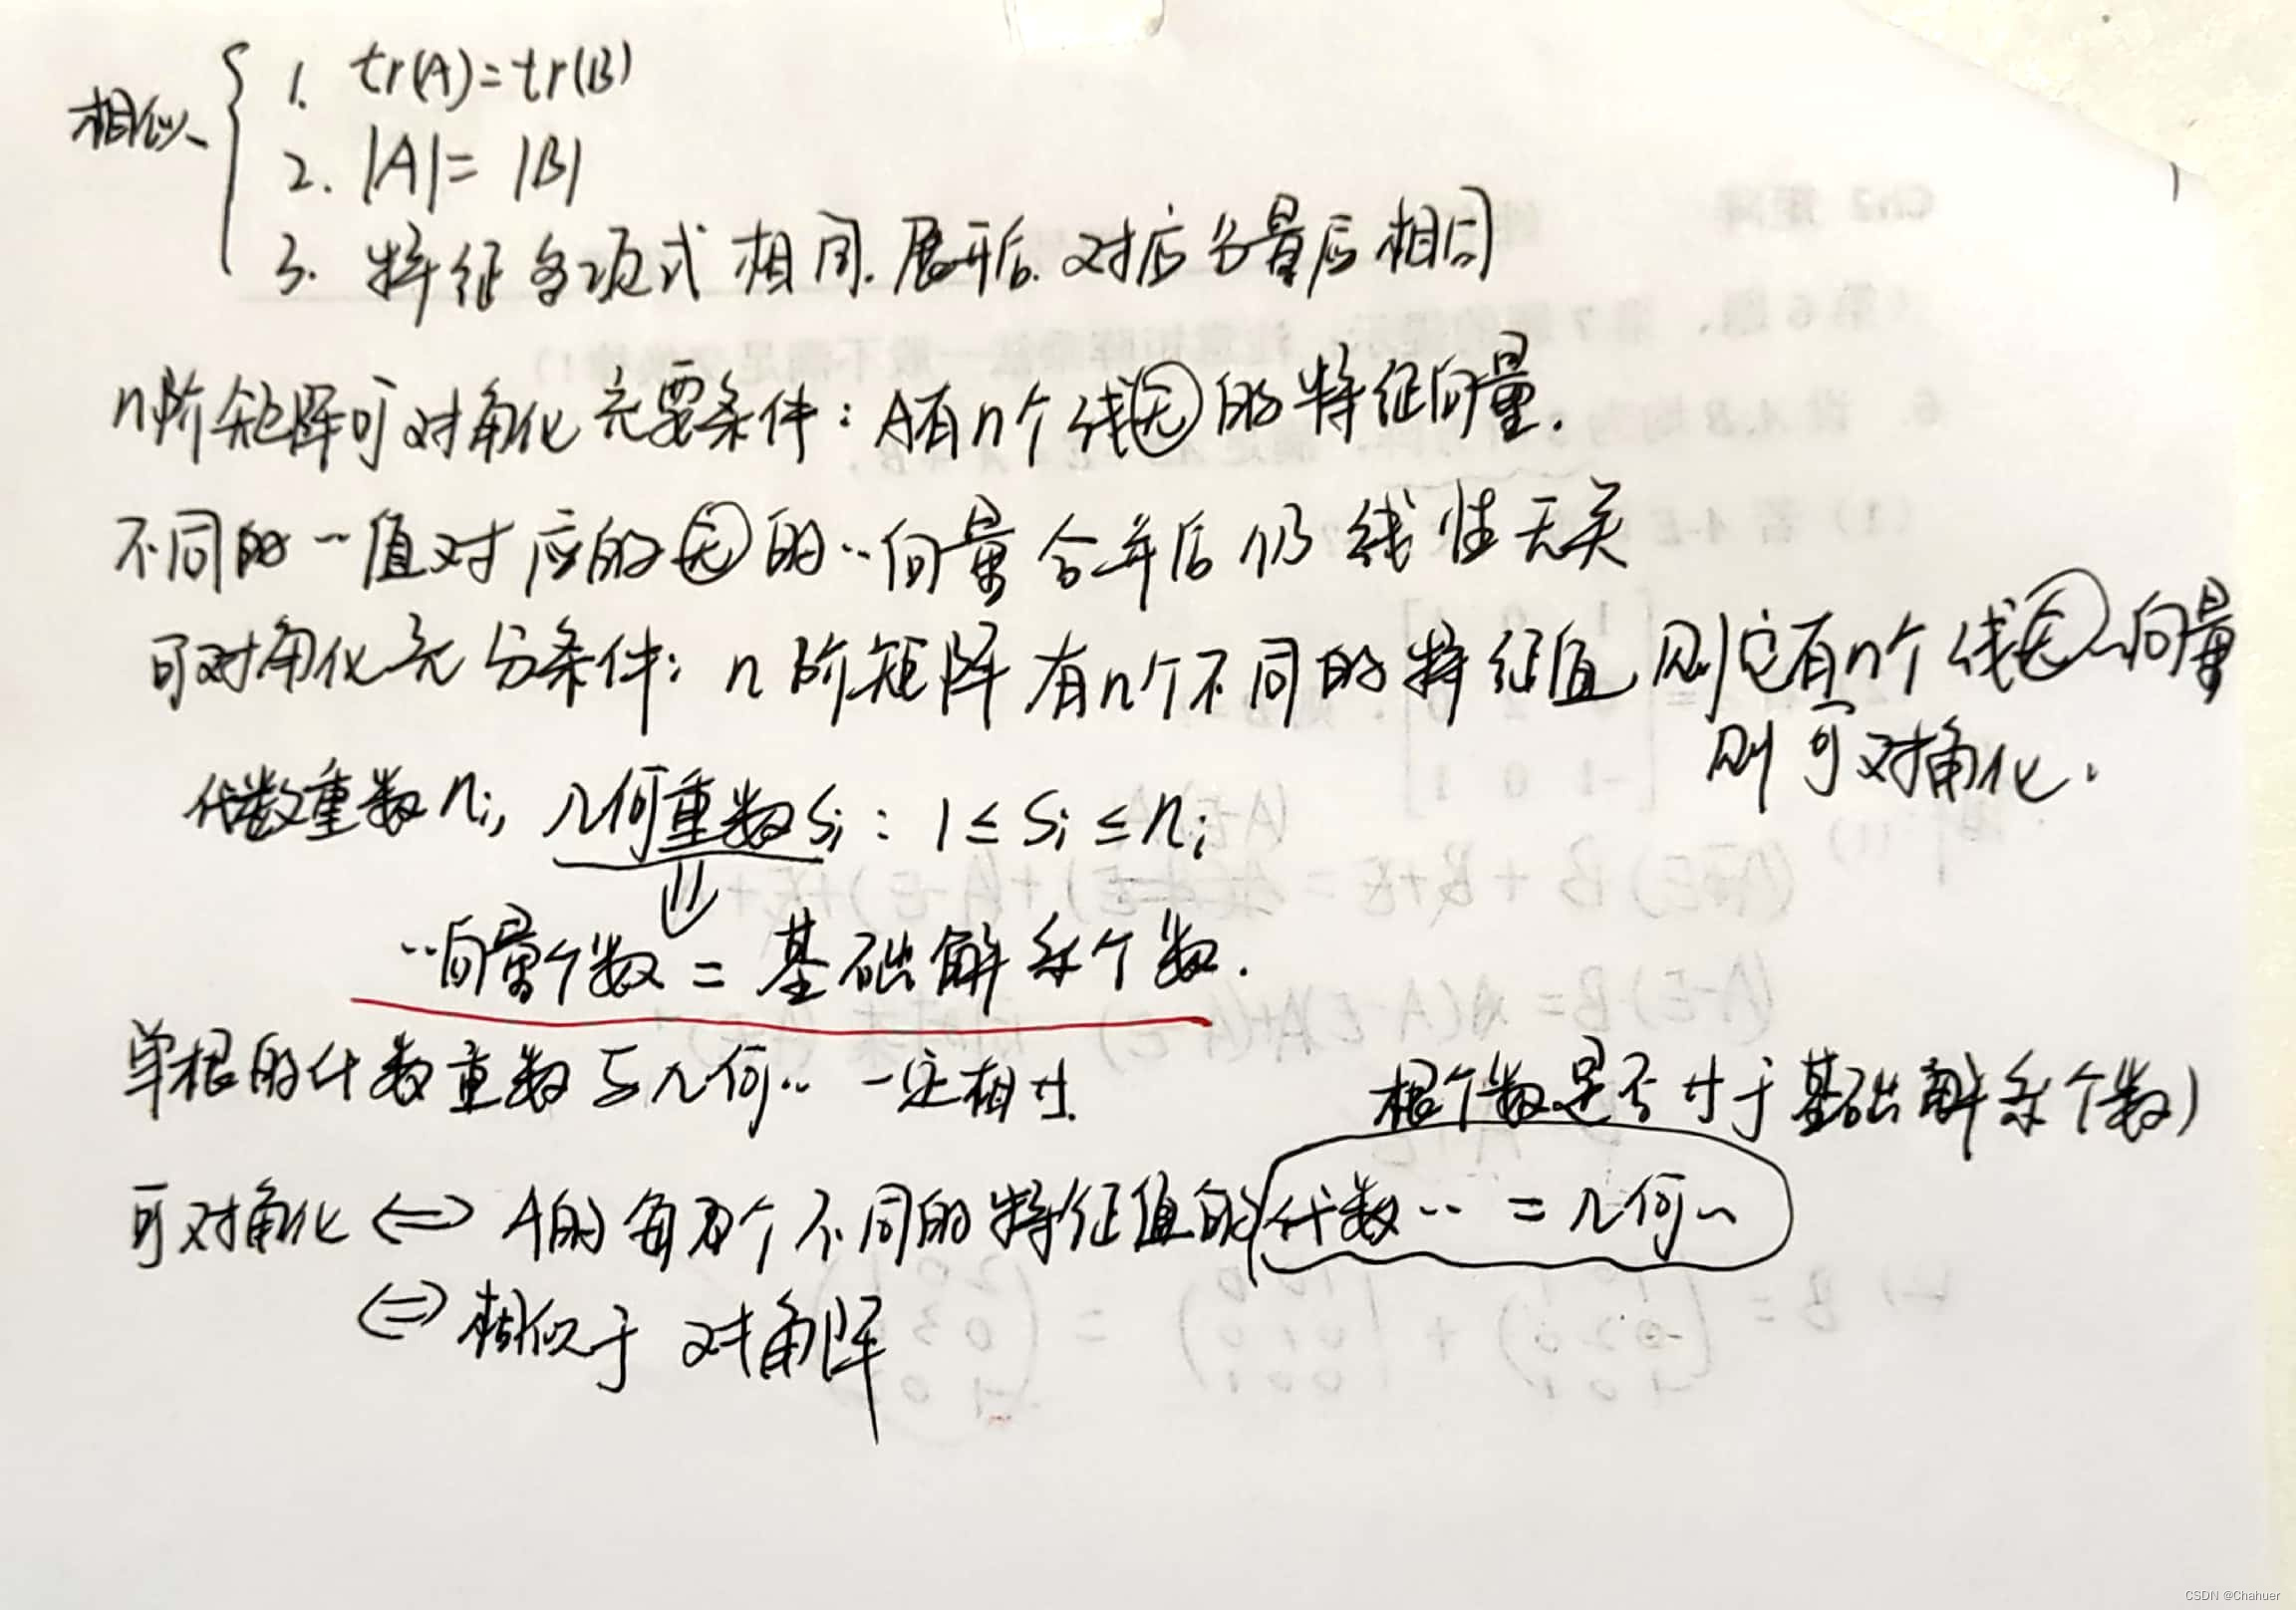 相似 { 1. tr(A)=tr(B)
2. |A|= |B|
3. 特征多项式相同.展开后.对应分量应相同
n阶矩阵可对角化充要条件：A有n个线无的特征向量.
不同的‥值对应的无的‥向量合并后仍线性无关
可对角化充分条件：n阶矩阵有n个不同的特征值，则它有n个线无‥向量
则可对角化.
代数重数ni, 几何重数si：1≤si≤ni
⇓
‥向量个数=基础解系个数.
单根的代数重数与几何‥一定相等.
根个数是否等于基础解系个数)
可对角化⇔A的每个不同的特征值的代数‥=几何‥
⇔相似于对角阵
CSDN @Chahuer